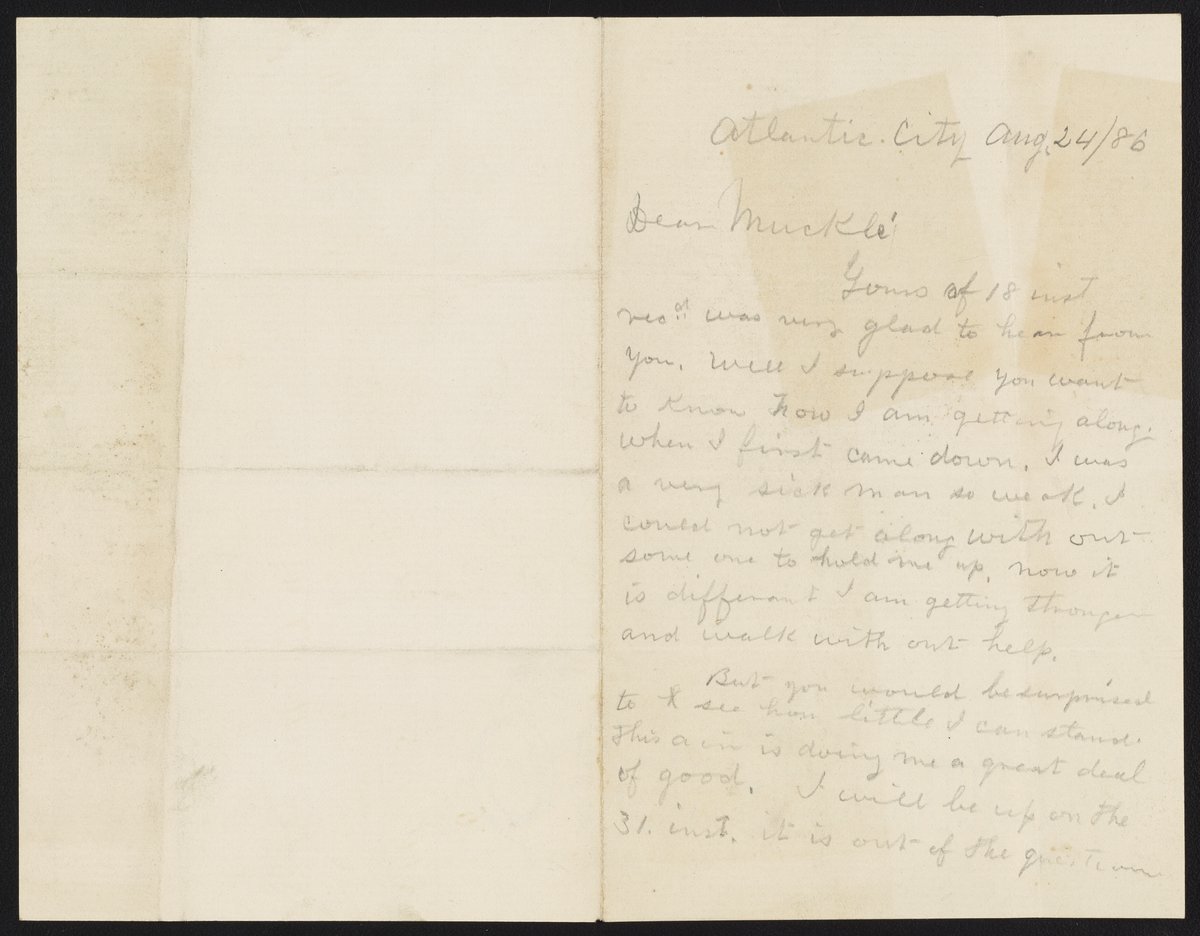 Atlantic. City Aug. 24/86
Dear Muckle'
Yours of 18 inst
rec'd was very glad to hear from
you. Well I suppose you want
to know how I am getting along.
when I first came down. I was
a very sick man so weak. I
could not get along with out
some one to hold me up. now it
is differant I am getting stronger
and walk with out help.
But you would be surprised
to see how little I can stand.
This air is doing me a great deal
of good. I will be up on the
31. inst. it is out of the question